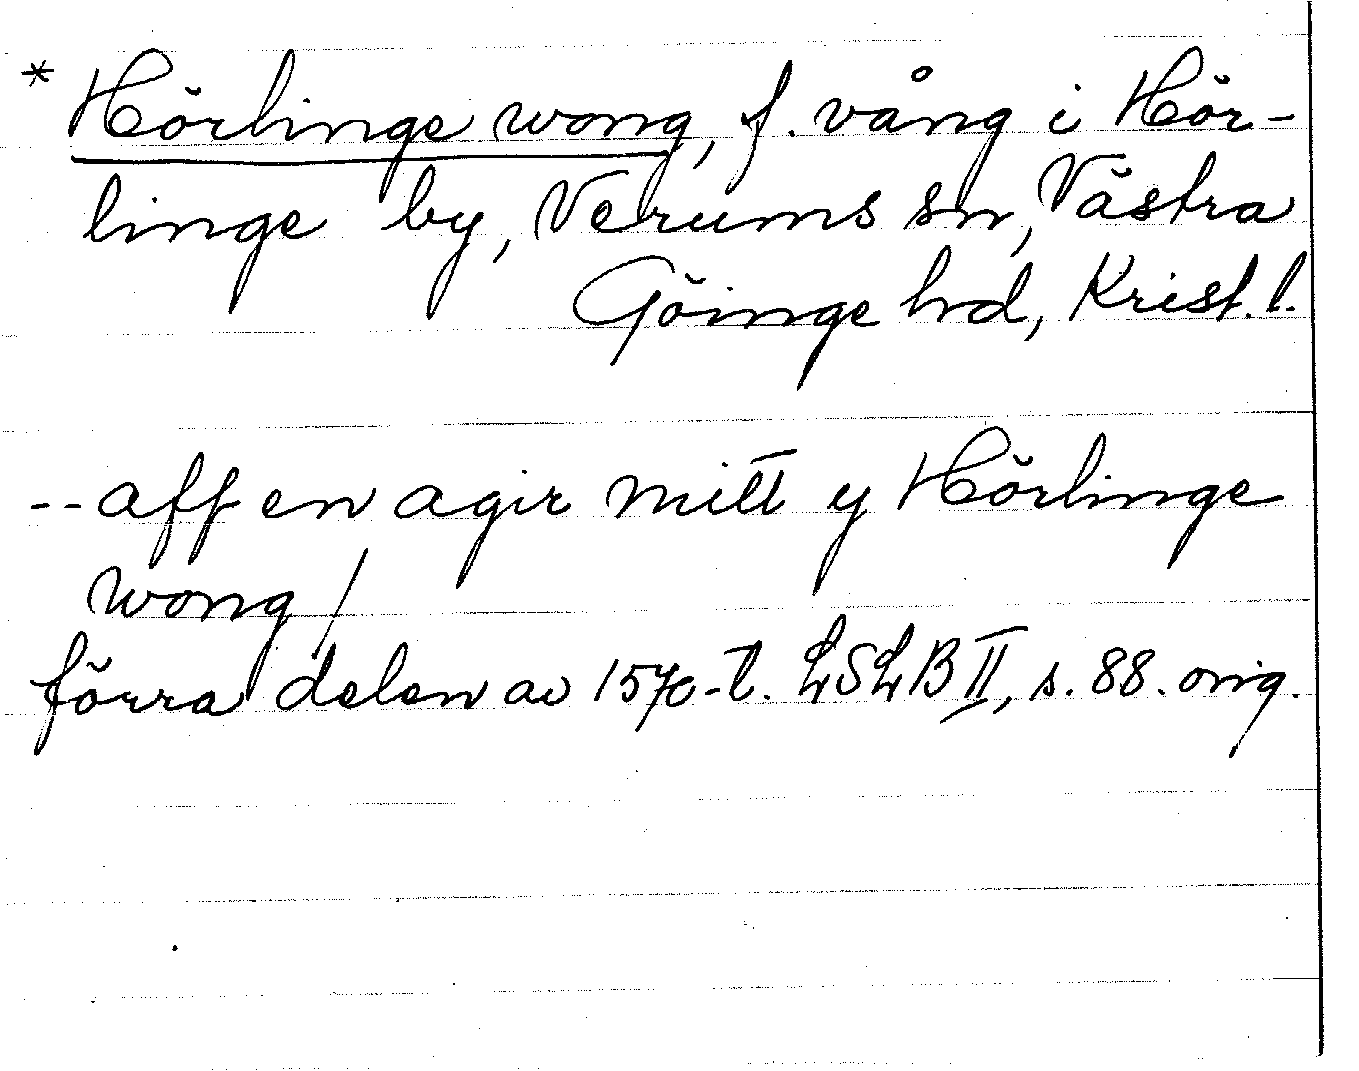 * Hörlinge wong, f. vång i Hör-
linge by, Verums sn, Västra
Göinge hd, Krist. l.
-- aff en agir mitt y Hörlinge
wong/
förra delen av 1570-t. LSLB II, s. 88. orig.